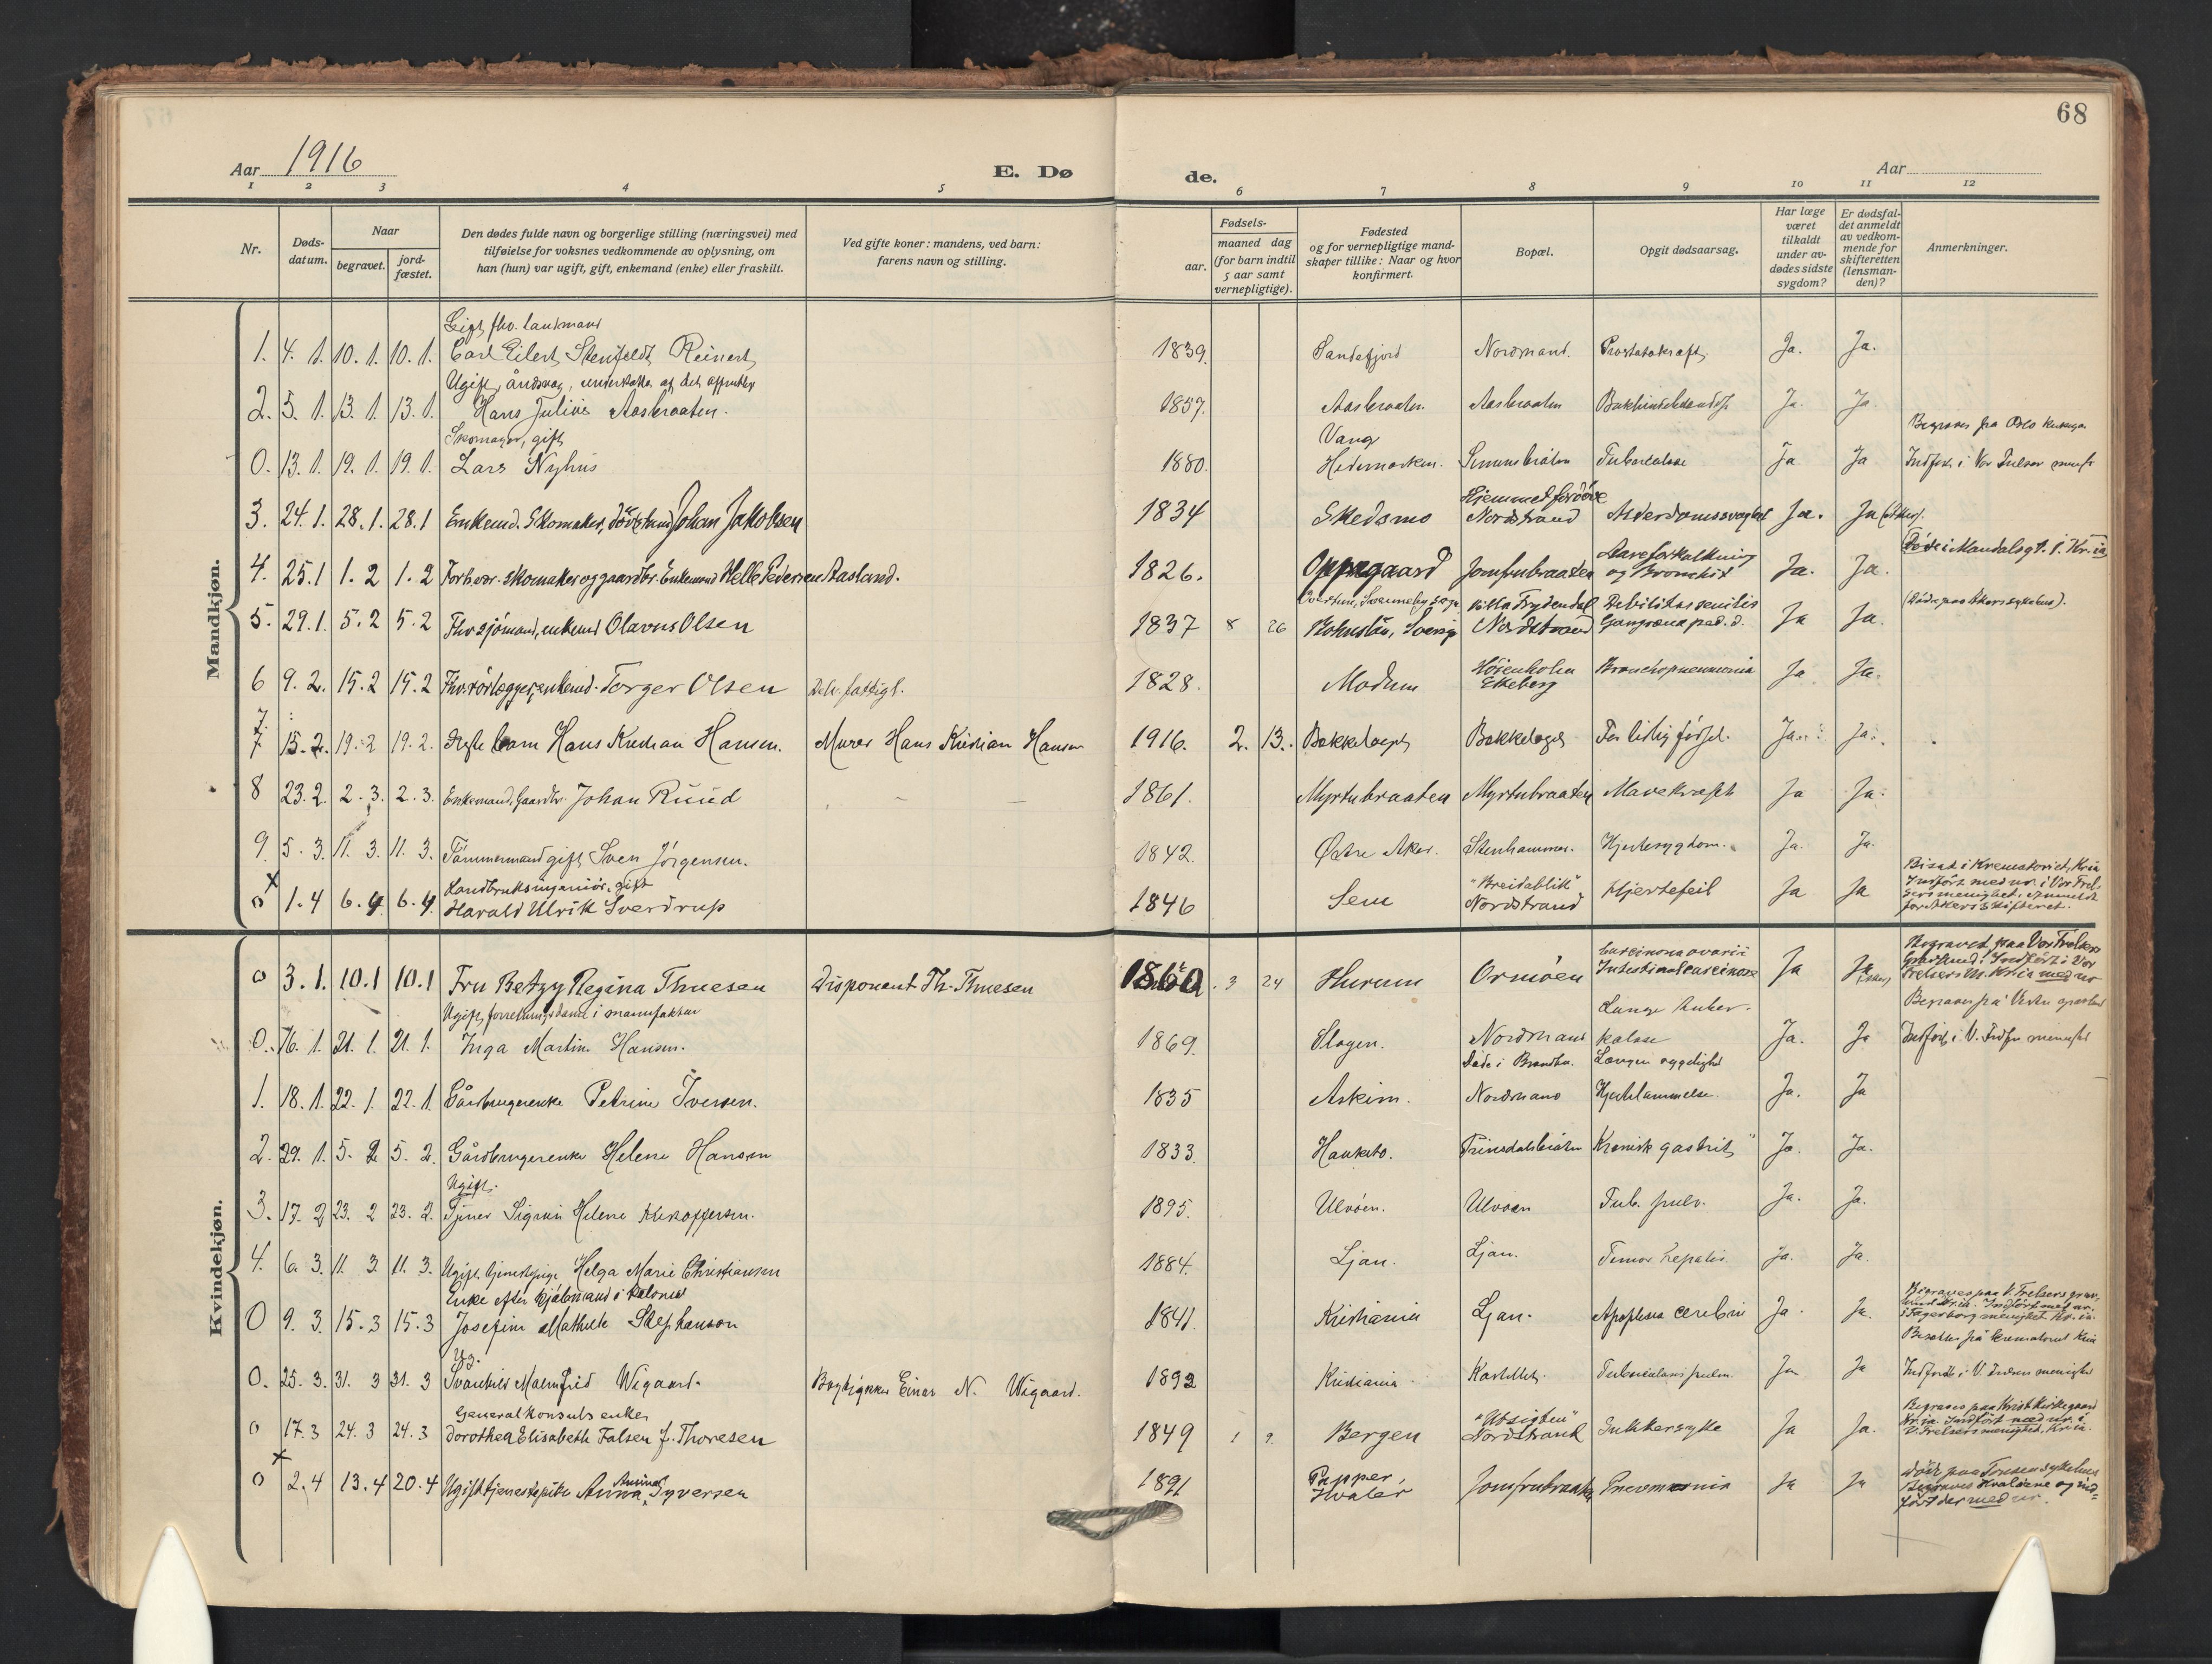 68
Aar 1916
E. Dø
de.
Aar
1 2 3 4 5 6 7 8 9 10 11 12
Nr.
Døds-
datum.
Naar
begravet.
jord-
fæstet.
Den dødes fulde navn og borgerlige stilling (næringsvei) med
tilføielse for voksnes vedkommende av oplysning, om
han (hun) var ugift, gift, enkemand (enke) eller fraskilt.
Ved gifte koner: mandens, ved barn:
farens navn og stilling.
Fødsels-
aar.
maaned dag
(for barn indtil
5 aar samt
vernepligtige).
Fødested
og for vernepligtige mand-
skaper tillike: Naar og hvor
konfirmert.
Bopæl.
Opgit dødsaarsag.
Har læge
været
tilkaldt
under av-
dødes sidste
sygdom?
Er dødsfal-
det anmeldt
av vedkom-
mende for
skifteretten
(lensman-
den)?
Anmerkninger.
Mandkjøn.
Gift, fhv. landmand
1. 4. 1. 10. 1. 10. 1. Carl Eilert Stenfeldt Reinert 1839. Sandefjord Nordstrand. Prostatakræft Ja. Ja.
Ugift, åndssvag,
2. 5. 1. 13. 1. 13. 1. Hans Julius Aasbraaten. 1857. Aasbraaten Aasbraaten Ja. Ja
Skomager, gift Vang
0. 13. 1. 19. 1. 19. 1. Lars Nyhus 1880. Hedemarken. Tuberkulose Ja Ja Indført i Vor Frelser
Hjemmet for døve
3. 24. 1. 28. 1. 28. 1 Enkemd. Skomaker, døvstum Johan Jakobsen 1834 Skedsmo Nordstrand Alderdomssvaghet Ja. Ja (Aker).
Aareforkalkning Døde i Mandalsgt. i Kr.ia
4. 25. 1 1. 2 1. 2 Forh.vær. skomaker og gaardbr. Enkemand Helle Pedersen Aasland. 1826. Oppegaard Jomfrubraaten og Bronchit Ja. Ja.
Villa Frydendal Debilitas senilis (Døde paa Akers sykehus).
5. 29. 1. 5. 2 5. 2 Fhv. sjømand, enkemd Olavus Olsen 1837 8 26 Bohuslän, Sverige Nordstrand Gangræna ped. d. Ja Ja.
Høienholm
6 9. 2. 15. 2 15. 2 Fhv. rørlægger, enkemd. Torger Olsen Delv. fattigl. 1828. Modum Ekeberg Bronchopneumonia Ja Ja.
7. 15. 2. 19. 2 19. 2. barn Hans Kristian Hansen. Murer Hans Kristian Hansen 1916. 2. 13. Bækkelaget Bækkelaget For tidlig fødsel. Ja. Ja.
8 23. 2. 2. 3. 2. 3. Enkemand, Gaardbr. Johan Ruud 1861. Myrtubraaten Myrtubraaten Mavekræft Ja Ja.
9. 5. 3. 11. 3. 11. 3. Tømmermand gift Sven Jørgensen. 1842. Østre Aker. Stenhammer. Hjertesygdom. Ja. Ja.
x Landbruksingeniør, gift "Breidablik" Bisat i Krematoriet, Kr.ia
0 1. 4 6. 4 6. 4. Harald Ulrik Sverdrup 1846 Sem Nordstrand Hjertefeil Ja Ja Indført med nr. i Vor Frel-
sers menighet. Anmeldt
for Akers skifteret.
Kvindekjøn.
Carcinoma ovarii Begravet paa Vor Frelsers
0 3. 1. 10. 1 10. 1 Fru Betzy Regina Thuesen Disponent Th. Thuesen 1860 3 24 Hurum Ormøen Intestinalcarcinose Ja Ja (Aker) Gravlund. Indført i Vor
Frelsers M. Kr.ia med nr
Ugift, forretningsdame i manufaktur Lunge tuber- Begraves på Vestre gravlund
0. 16. 1. 21. 1. 21. 1. Inga Martine Hansen. 1869. Slagen. Nordstrand kulose Ja. Ja Indført i V. Frelser menighet
1. 18. 1. 22. 1. 22. 1. Gårdbrugerenke Petrine Iversen. 1835 Askim. Nordstrand Hjertelammelse. Ja. Ja
2. 29. 1. 5. 2 5. 2. Gårdbrugerenke Helene Hansen 1833. Hauketo. Prinsdalsbråten Kronisk gastrit Ja. Ja.
Ugift.
3. 17. 2 23. 2 23. 2. Tjener Sigrun Helene Kristoffersen. 1895. Ulvøen. Ulvøen Tub. pulm. Ja. Ja.
4. 6. 3. 11. 3 11. 3. Ugift tjenestepige Helga Marie Christiansen 1884. Ljan. Ljan. Tumor hepatis. Ja. Ja.
Enke efter kjøbmand i kolonial Begraves paa V. Frelsers grav-
0 9. 3. 15. 3 15. 3 Josefine Mathilde Stephanson 1841. Kristiania Ljan. Apoplexia cerebri Ja. Ja. lund Kr.ia. Indført med nr.
i Fagerborg menighet Kr.ia.
Ug. Bisættes på krematoriet Kr.ia
0. 25. 3. 31. 3 31. 3 Svanhild Malmfrid Wigaard. Bygtignker Einar N. Wigaard. 1892 Kristiania. Kastellet. Tuberculosis pulm. Ja Ja Indført i V. Frelser menighet
Generalkonsuls enke "Utsigten" Begraves paa Krist Kirkegaard
0 17. 3 24. 3 24. 3 Dorothea Elisabeth Falsen f. Thoresen 1849 1 9. Bergen Nordstrand Sukkersyke Ja Ja. Kr.ia. Indført med nr. i
V. Frelsers menighet, Kr.ia.
x Papper, Døde paa Tonsen sykehus
0 2. 4 13. 4 20. 4 Ugift tjenestepike Anna Syversen 1891 Hvaler Jomfrubraaten Pneumonia Ja Ja Begraves Hvalerne og ind-
ført der med nr.